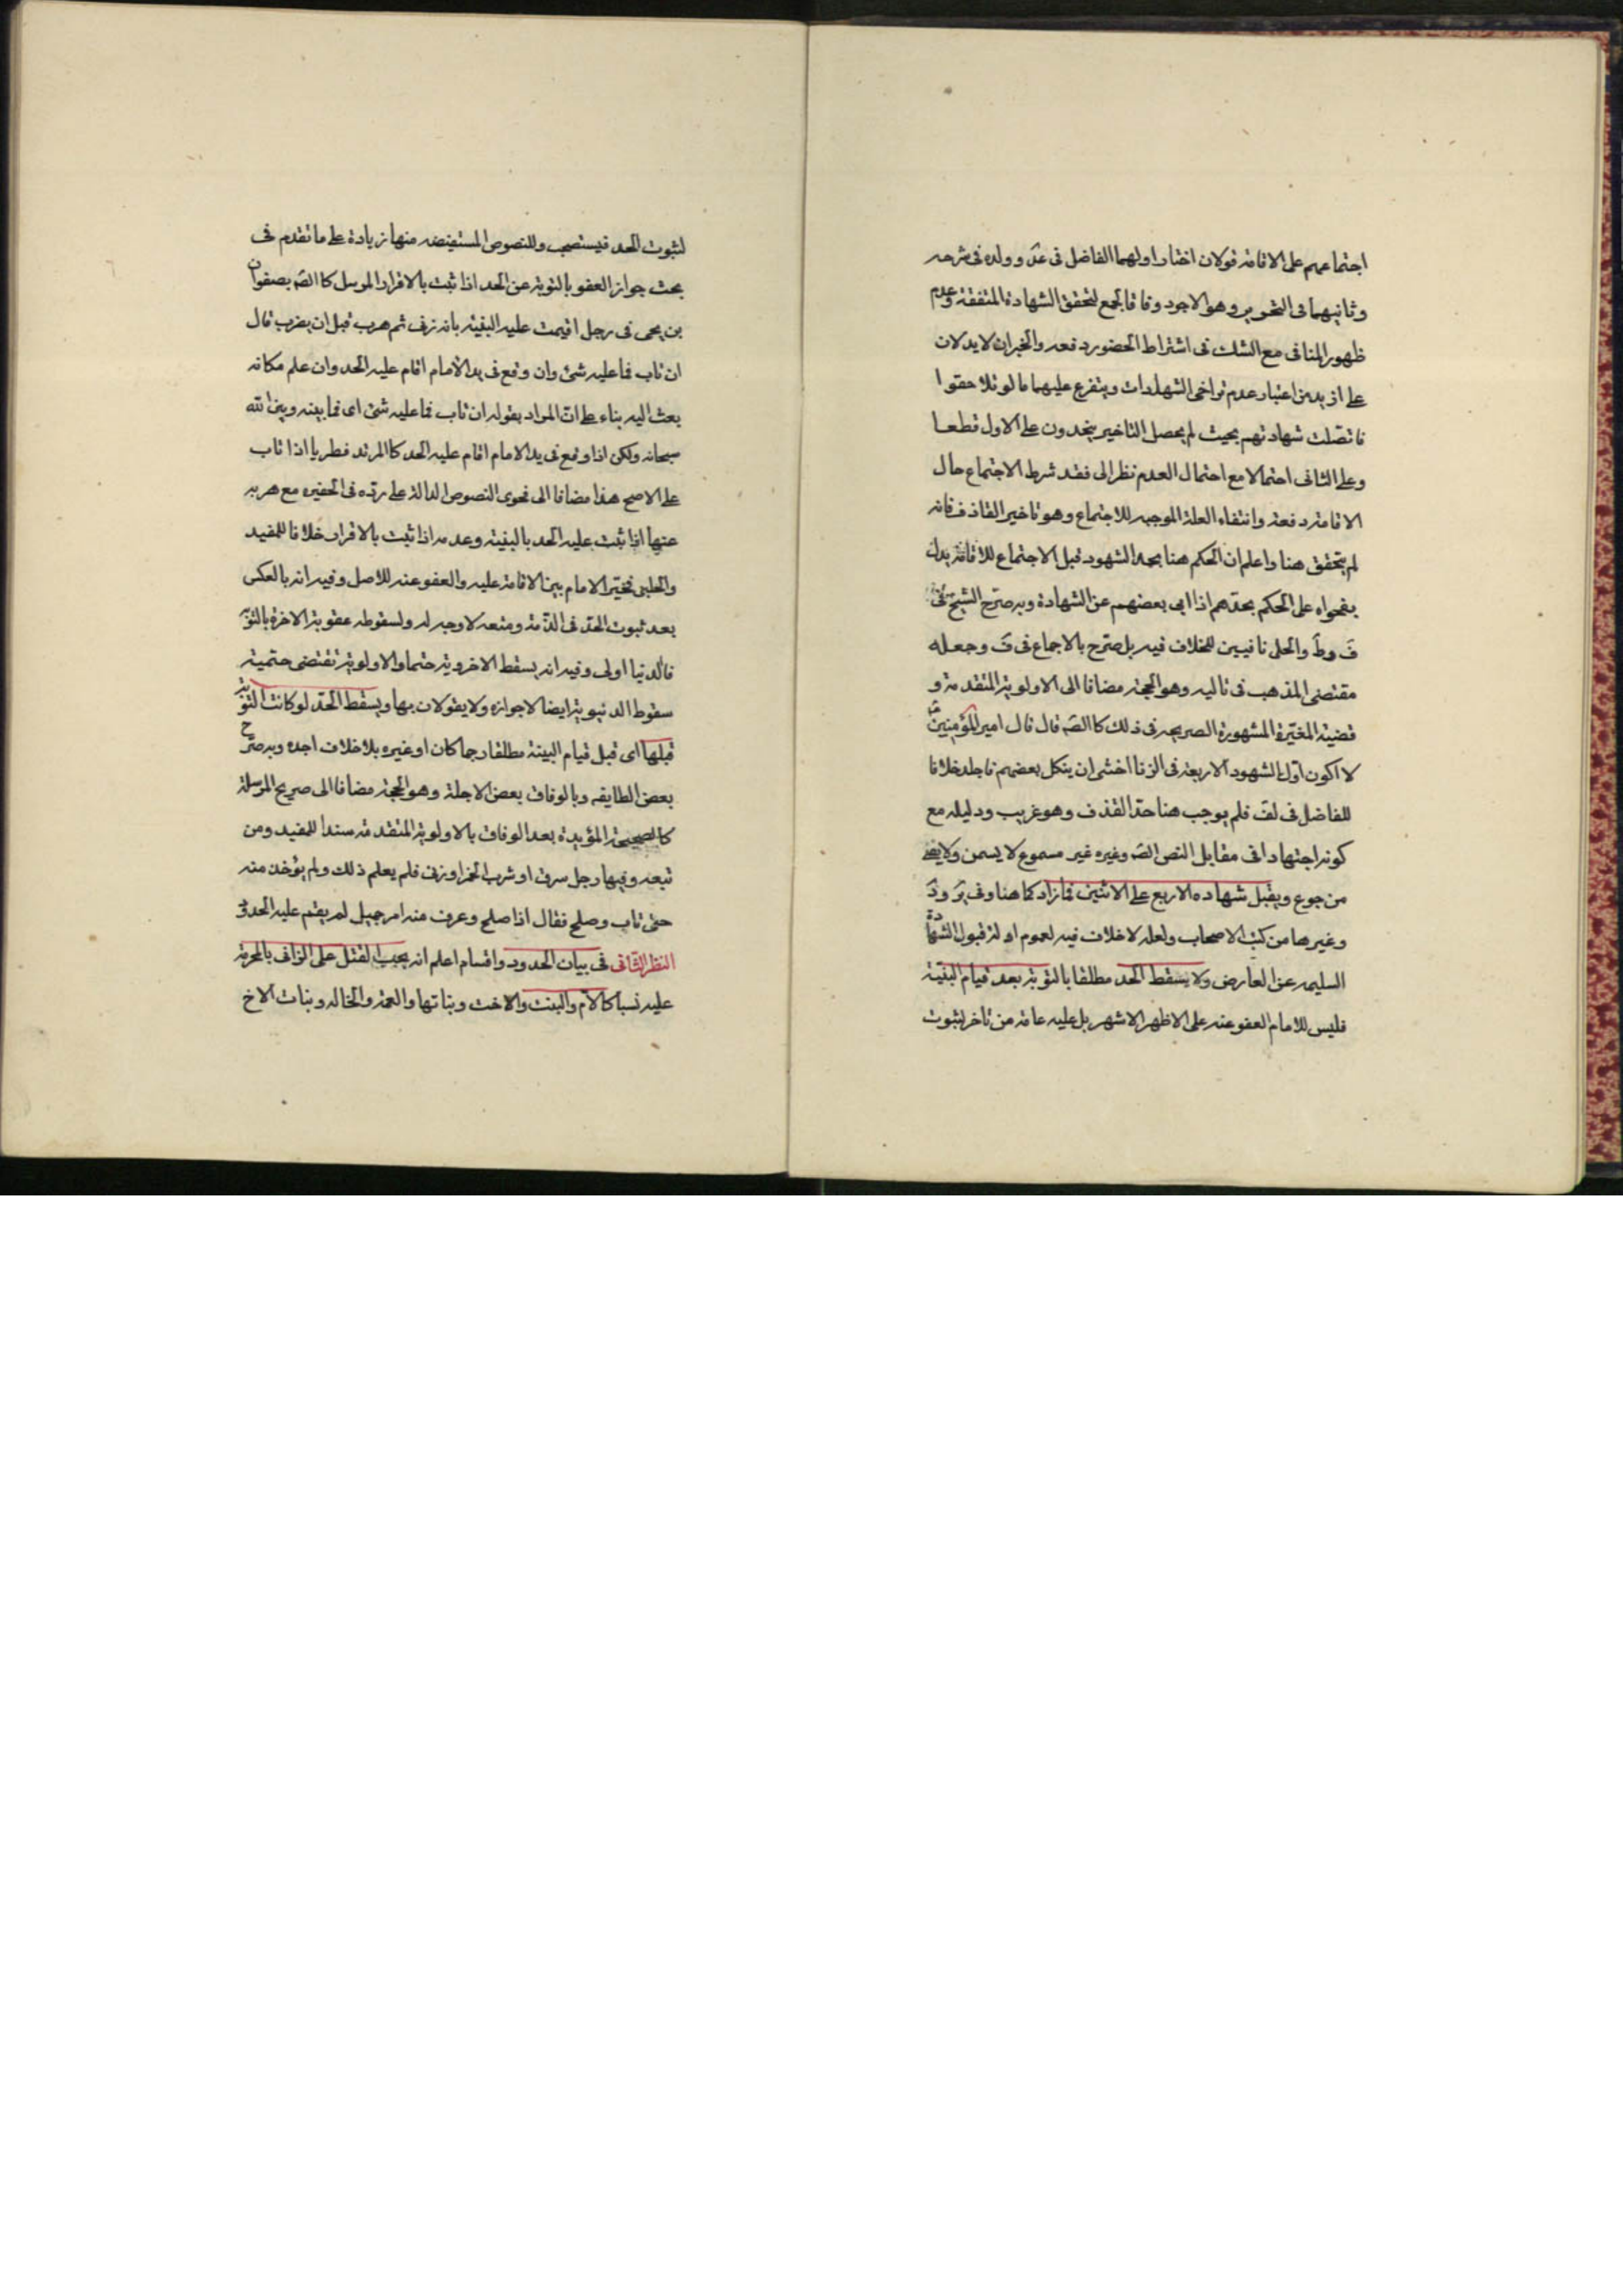 اجتماعهم على الاقامة قولان اختار اولهما الفاضل فى عد وولده فى شرحه
وثانيهما فى التحرير وهو الاجود وفاقا لجمع لتحقق الشهادة المتفقة وعدم
ظهور المنافى مع الشك فى اشتراط الحضور دفعة والخبران لا يدلان
على ازيد من اعتبار عدم تراخى الشهادات ويتفرع عليهما ما لو تلاحقوا
فاتصلت شهادتهم بحيث لم يحصل التاخير يحدون على الاول قطعا
وعلى الثانى احتمالا مع احتمال العدم نظرا الى فقد شرط الاجتماع حال
الاقامة دفعة وانتفاء العلة الموجبة للاجتماع وهو تاخير القاذف فانه
لم يتحقق هنا واعلم ان الحكم هنا بحد الشهود قبل الاجتماع للاقامة يدل
بفحواه على الحكم بحدهم اذا ابى بعضهم عن الشهادة وبه صرح الشيخ فى
ف وط والحلى نافيين للخلاف فيه بل صرح بالاجماع فى ف وجعله
مقتضى المذهب فى تاليه وهو الحجة مضافا الى الاولوية المتقدمة و
قضية المغيرة المشهورة الصريحة فى ذلك كالصه قال قال امير المؤمنين ع
لا اكون اول الشهود الاربعة فى الزنا اخشى ان ينكل بعضهم فاجلد خلافا
للفاضل فى لف فلم يوجب هنا حد القذف وهو غريب ودليله مع
كونه اجتهادا فى مقابل النص الصه وغيره غير مسموع لا يسمن ولا يغنى
من جوع ويقبل شهادة الاربع على الاثنين فما زاد كما هنا وفى ير ود
وغيرها من كتب الاصحاب ولعله لا خلاف فيه لعموم ادلة قبول الشهادة
السليمة عن المعارض ولا يسقط الحد مطلقا بالتوبة بعد قيام البينة
فليس للامام العفو عنه على الاظهر الاشهر بل عليه عامة من تاخر لثبوت
لثبوت الحد فيستصحب وللنصوص المستفيضة منها زيادة على ما تقدم فى
بحث جواز العفو بالتوبة عن الحد اذا ثبت بالاقرار المرسل كالصه بصفوان
بن يحيى فى رجل اقيمت عليه البينة بانه زنى ثم هرب قبل ان يضرب قال
ان تاب فما عليه شئ وان وقع فى يد الامام اقام عليه الحد وان علم مكانه
بعث اليه بناء على ان المراد بقوله ان تاب فما عليه شئ اى فما بينه وبين الله
سبحانه ولكن اذا وقع فى يد الامام اقام عليه الحد كالمرتد فطريا اذا تاب
على الاصح هذا مضافا الى فحوى النصوص الدالة على رده فى الحفيرة مع هربه
عنها اذا ثبت عليه الحد بالبينة وعدمه اذا ثبت بالاقرار خلافا للمفيد
والحلبى فخير الامام بين الاقامة عليه والعفو عنه للاصل وفيه انه بالعكس
بعد ثبوت الحد فى الذمة ومنعه لا وجه له ولسقوطه عقوبة الاخرة بالتوبة
فالدنيا اولى وفيه انه يسقط الاخروية حتما والاولوية تقتضى حتمية
سقوط الدنيوية ايضا لا جوازه ولا يقولان بها ويسقط الحد لو كانت التوبة
قبلها اى قبل قيام البينة مطلقا رجما كان او غيره بلا خلاف اجده وبه صرح
بعض الطايفة وبالوفاق بعض الاجلة وهو الحجة مضافا الى صريح المرسلة
كالصحيحة المؤيدة بعد الوفاق بالاولوية المتقدمة سندا للمفيد ومن
تبعه وفيها رجل سرق او شرب الخمر او زنى فلم يعلم ذلك ولم يؤخذ منه
حتى تاب وصلح فقال اذا صلح وعرف منه امر جميل لم يقم عليه الحد
النظر الثانى فى بيان الحدود واقسام اعلم انه يجب القتل على الزانى بالمحرمة
عليه نسبا كالام والبنت والاخت وبناتها والعمة والخالة وبنات الاخ